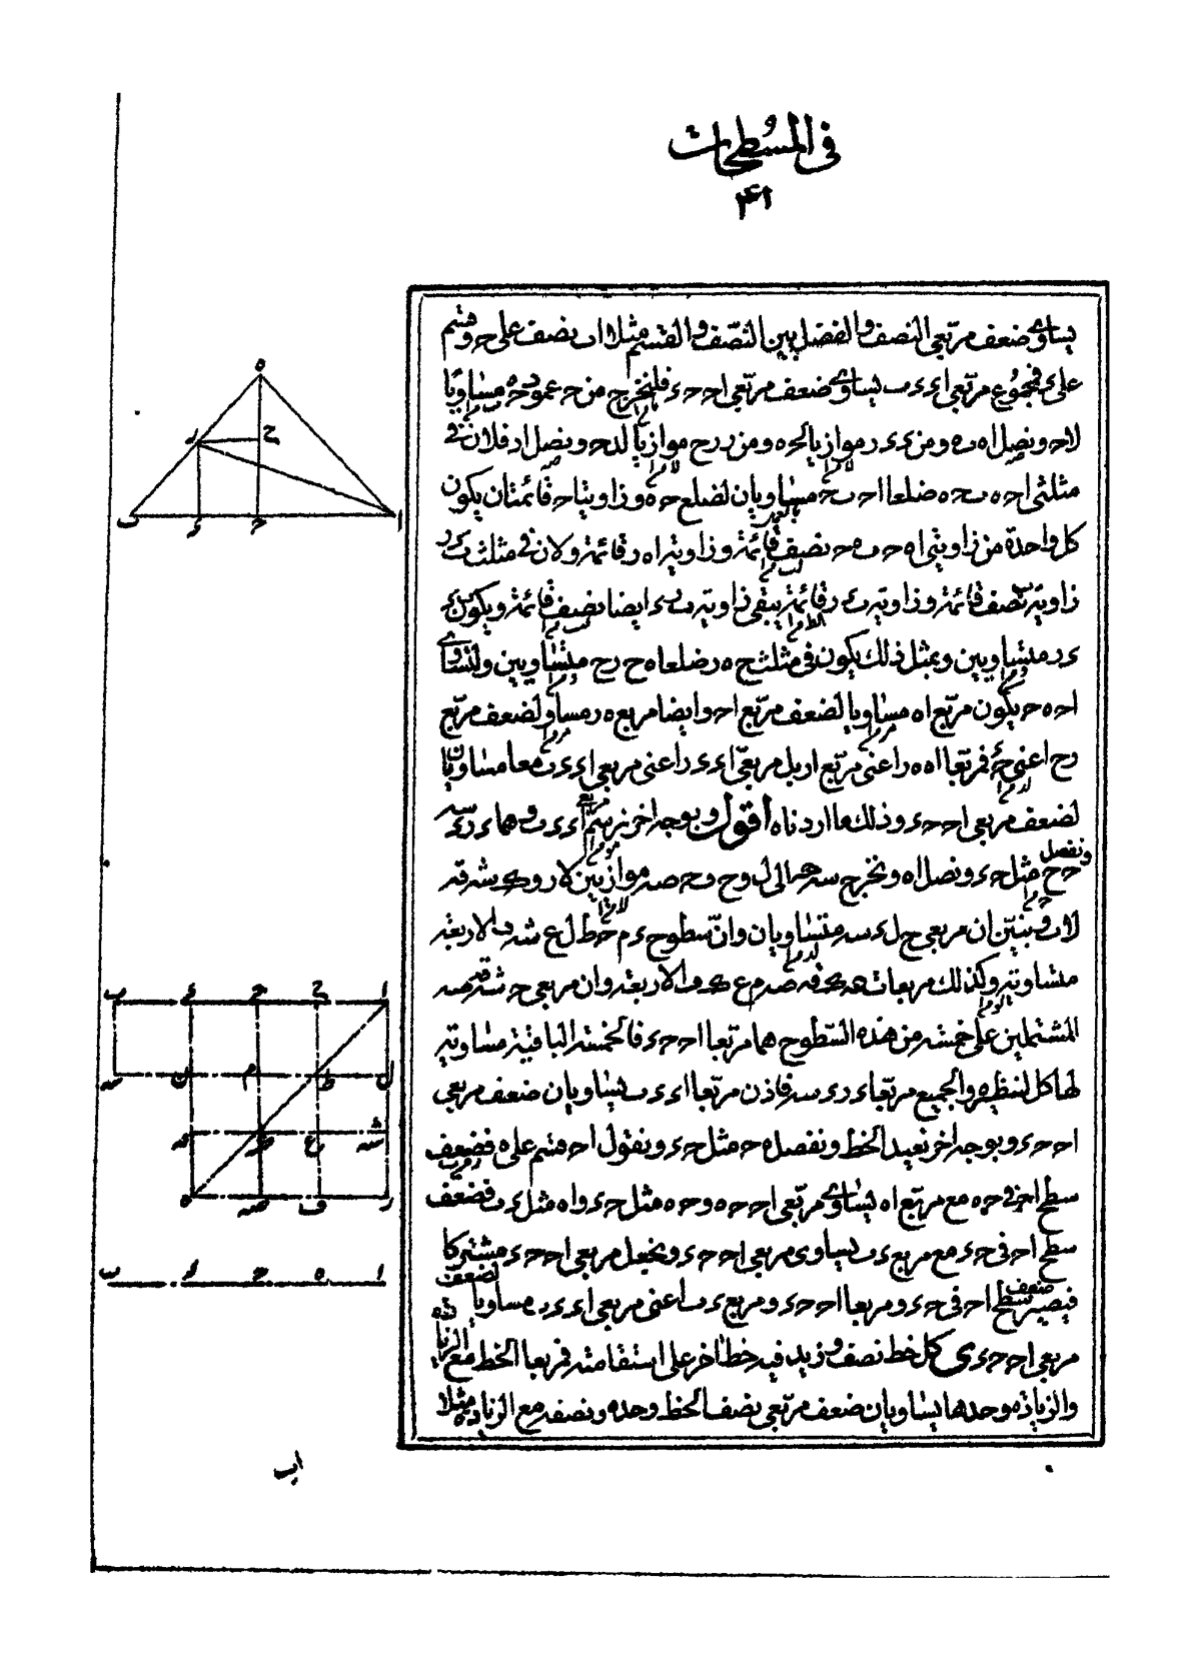 في المسطحات
٤١
يساوى ضعف مربعى النصف والفضل بين النصف والقسم مثلا اب نصف على ح وقسم
على ء فمجموع مربعى اء ء ب يساوى ضعف مربعى اح حء فلنخرج من ح عمود حه مساويا
لاح ونصل اه ب ه ومن ء ء ر موازيا لحه ومن ر رح موازيا لدح ونصل ار فلان فى
مثلثى احه ب حه ضلعا اح ب ح مساويان لضلع حه وزاويتا ح قائمتان يكون
كل واحدة من زاويتى اه ح ب ه ح نصف قائمة وزاوية اه ر قائمة ولان فى مثلث ب ء ر
زاوية ب نصف قائمة وزاوية ب ء ر قائمة يبقى زاوية ب ر ء ايضا نصف قائمة ويكون ب ء
ء ر متساويين وبمثل ذلك يكون فى مثلث ح ه ر ضلعا ه ح رح متساويين ولتساوى
اح ه ح يكون مربع اه مساويا لضعف مربع اح وايضا مربع ه ر مساو لضعف مربع
رح اعنى حء فمربعا اه ه ر اعنى مربع ار بل مربعى اء ء ر اعنى مربعى اء ء ب معا مساويان
لضعف مربعى اح حء وذلك ما اردناه اقول وبوجه اخر نرسم مربعى اء ء ب وهما ء ر ء سه
ونفصل
ح ح مثل حء ونصل اه ونخرج سه الى ل و ح ف حصه موازيين لار و شه قه
لاب فبين ان مربعى حل ء سه متساويان وان سطوح ء م ح ط ل ع شه ف الاربعة
متساوية وكذلك مربعات الاربعة وان مربعى ح شه قه صه
المشتملين على خمسة من هذه السطوح هما مربعا اح حء فالخمسة الباقية مساوية
لها كل لنظيره والجميع مربعا ء ر ء سه فاذن مربعا اء ء ب يساويان ضعف مربعى
اح حء وبوجه اخر نعيد الخط ونفصل ه ح مثل حء ونقول اح قسم على ه فضعف
سطح اح فى حه مع مربع اه يساوى مربعى اح حه وحه مثل حء واه مثل ء ب فضعف
سطح اح فى حء مع مربع ء ب يساوى مربعى اح حء ونجعل مربعى اح حء مشتركا
فيصير ضعف سطح اح فى حء ومربعا اح حء ومربع ء ب اعنى مربعى اء ء ب مساويا لضعف
مربعى اح حء ى كل خط نصف وزيد فيه خط اخر على استقامته فمربعا الخط مع الزيادة
والزيادة وحدها يساويان ضعف مربعى نصف الخط وحده ونصفه مع الزيادة مثلا
اب